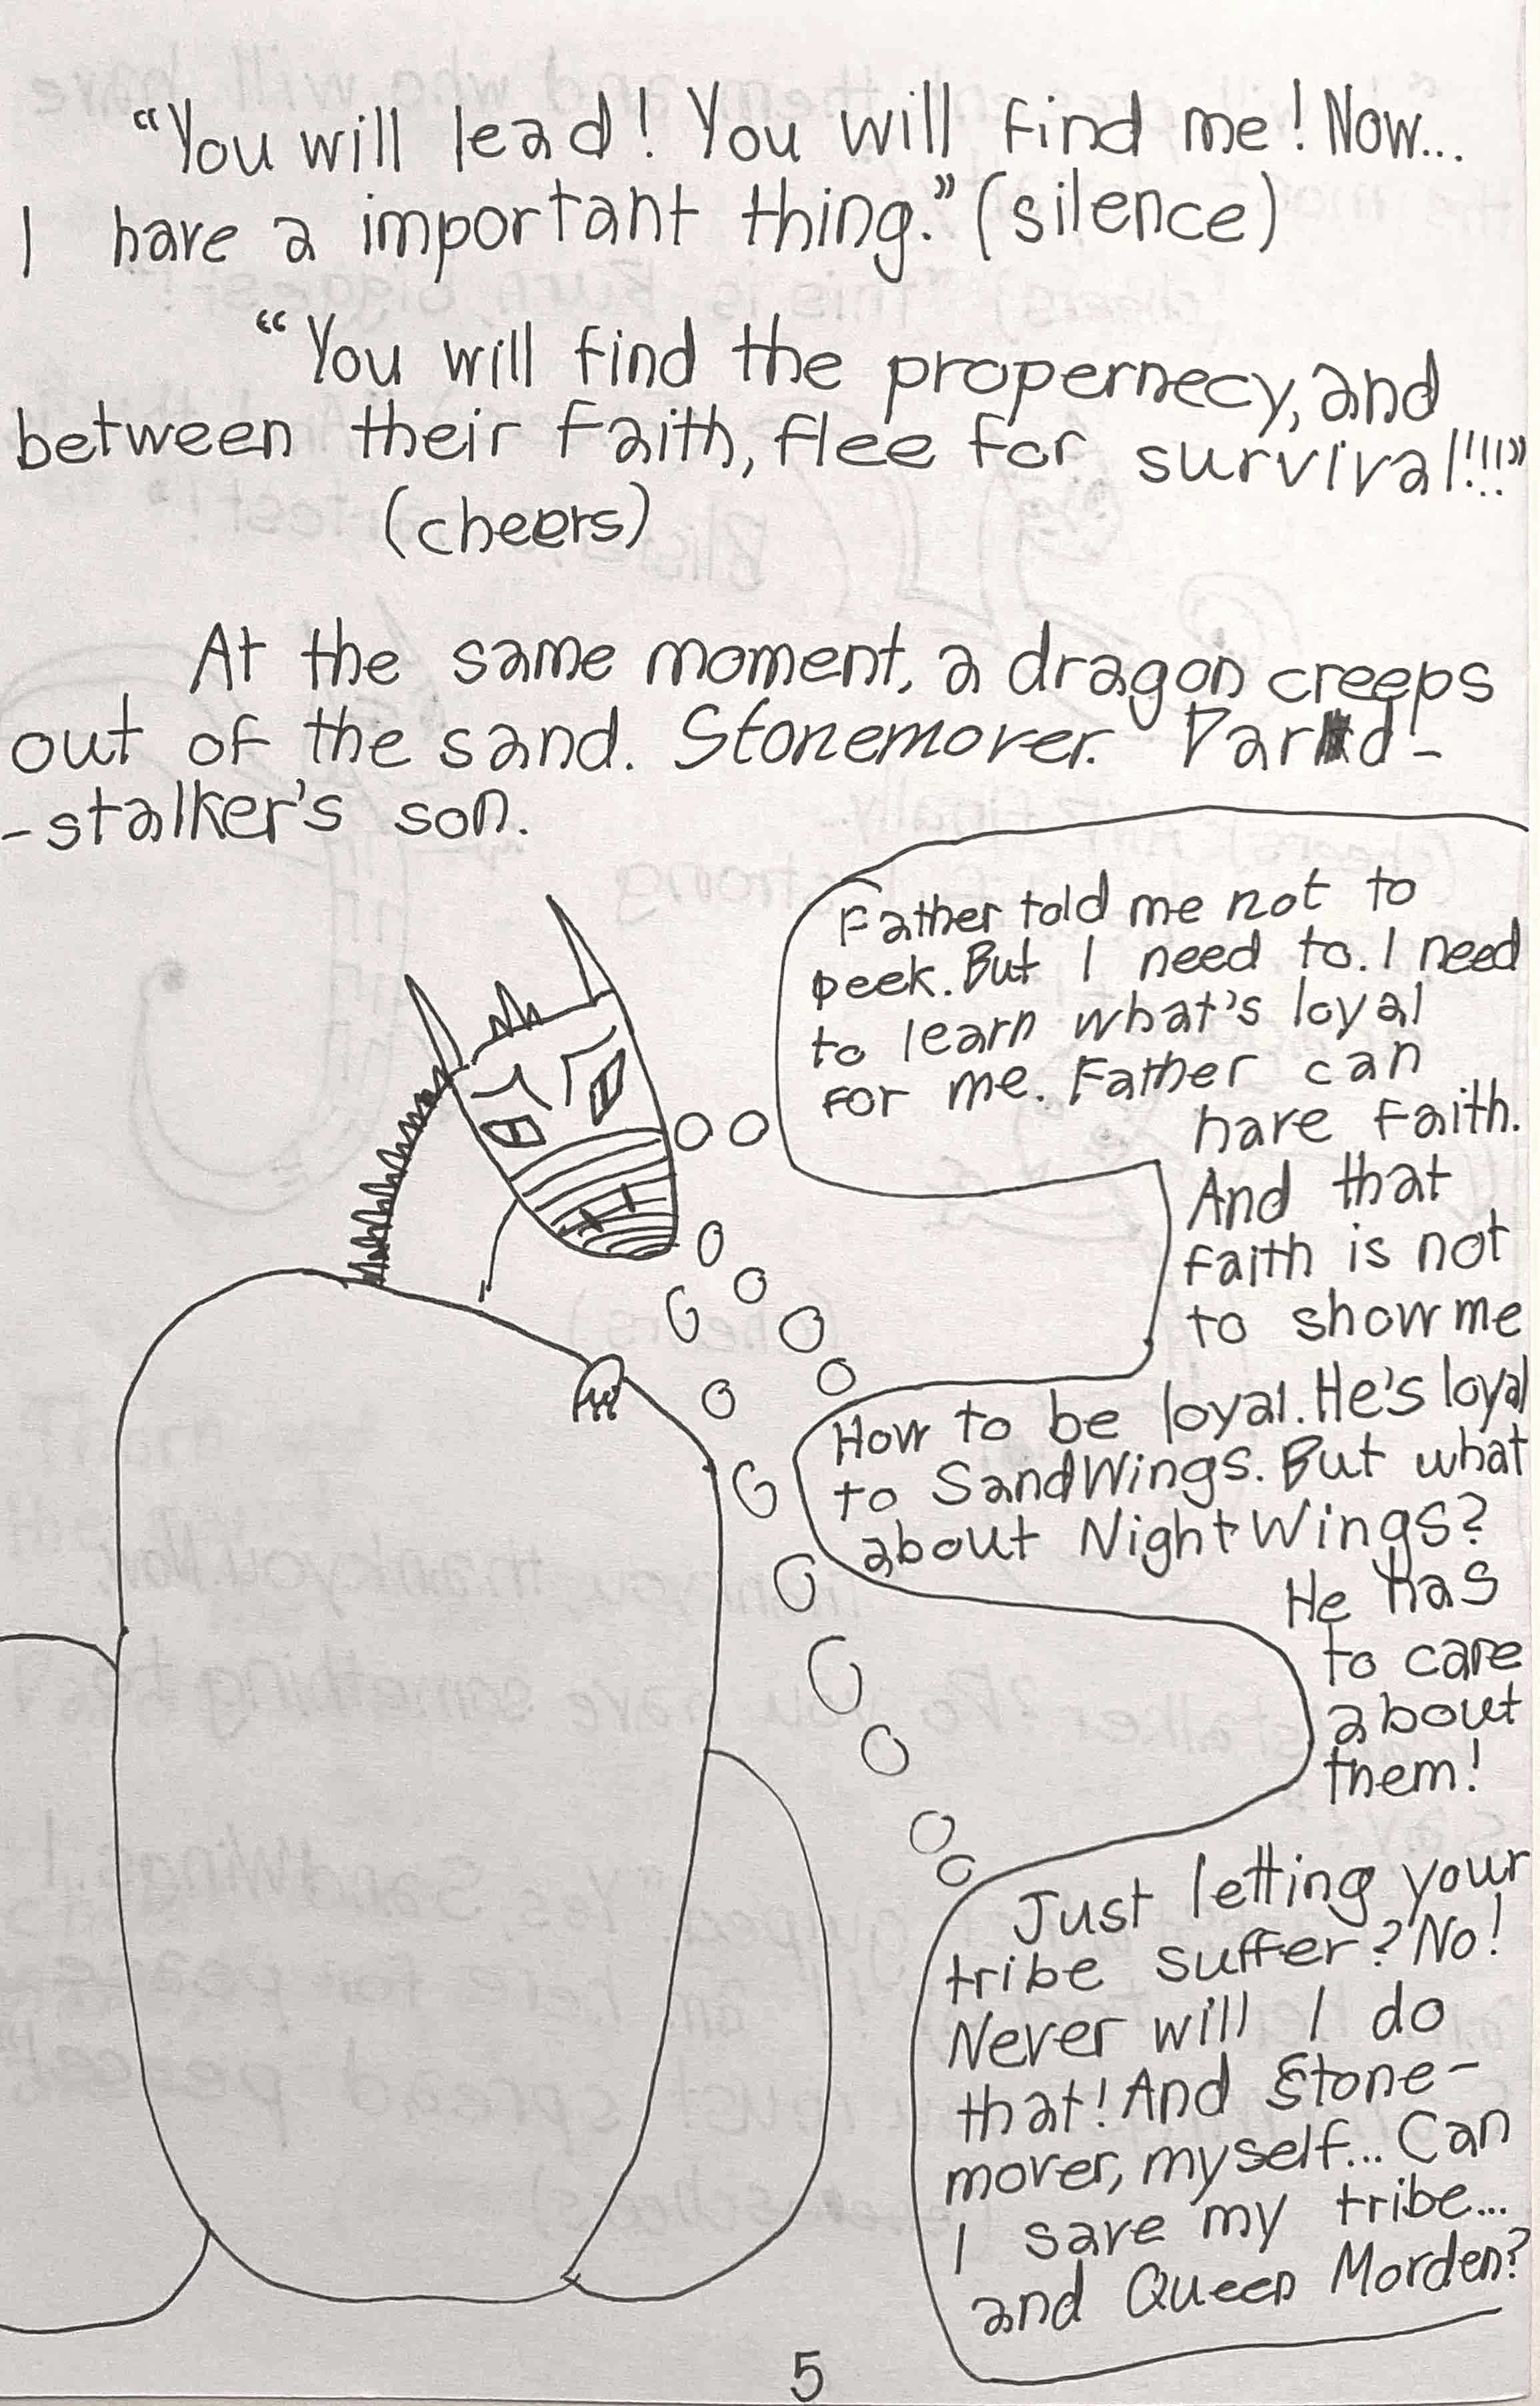 “You will lead! You will find me! Now...
I have a important thing.” (silence)
“You will find the propernecy, and
between their faith, flee for survival!!!!”
(cheers)
At the same moment, a dragon creeps
out of the sand. Stonemover. Dard-
-stalker's son.
Father told me not to
peek. But I need to. I need
to learn what's loyal
for me. Father can
have faith.
And that
faith is not
to show me
How to be loyal. He's loyal
to SandWings. But what
about NightWings?
He has
to care
about
them!
Just letting your
tribe suffer? No!
Never will I do
that! And Stone-
mover, myself... Can
I save my tribe...
and Queen Morden?
5